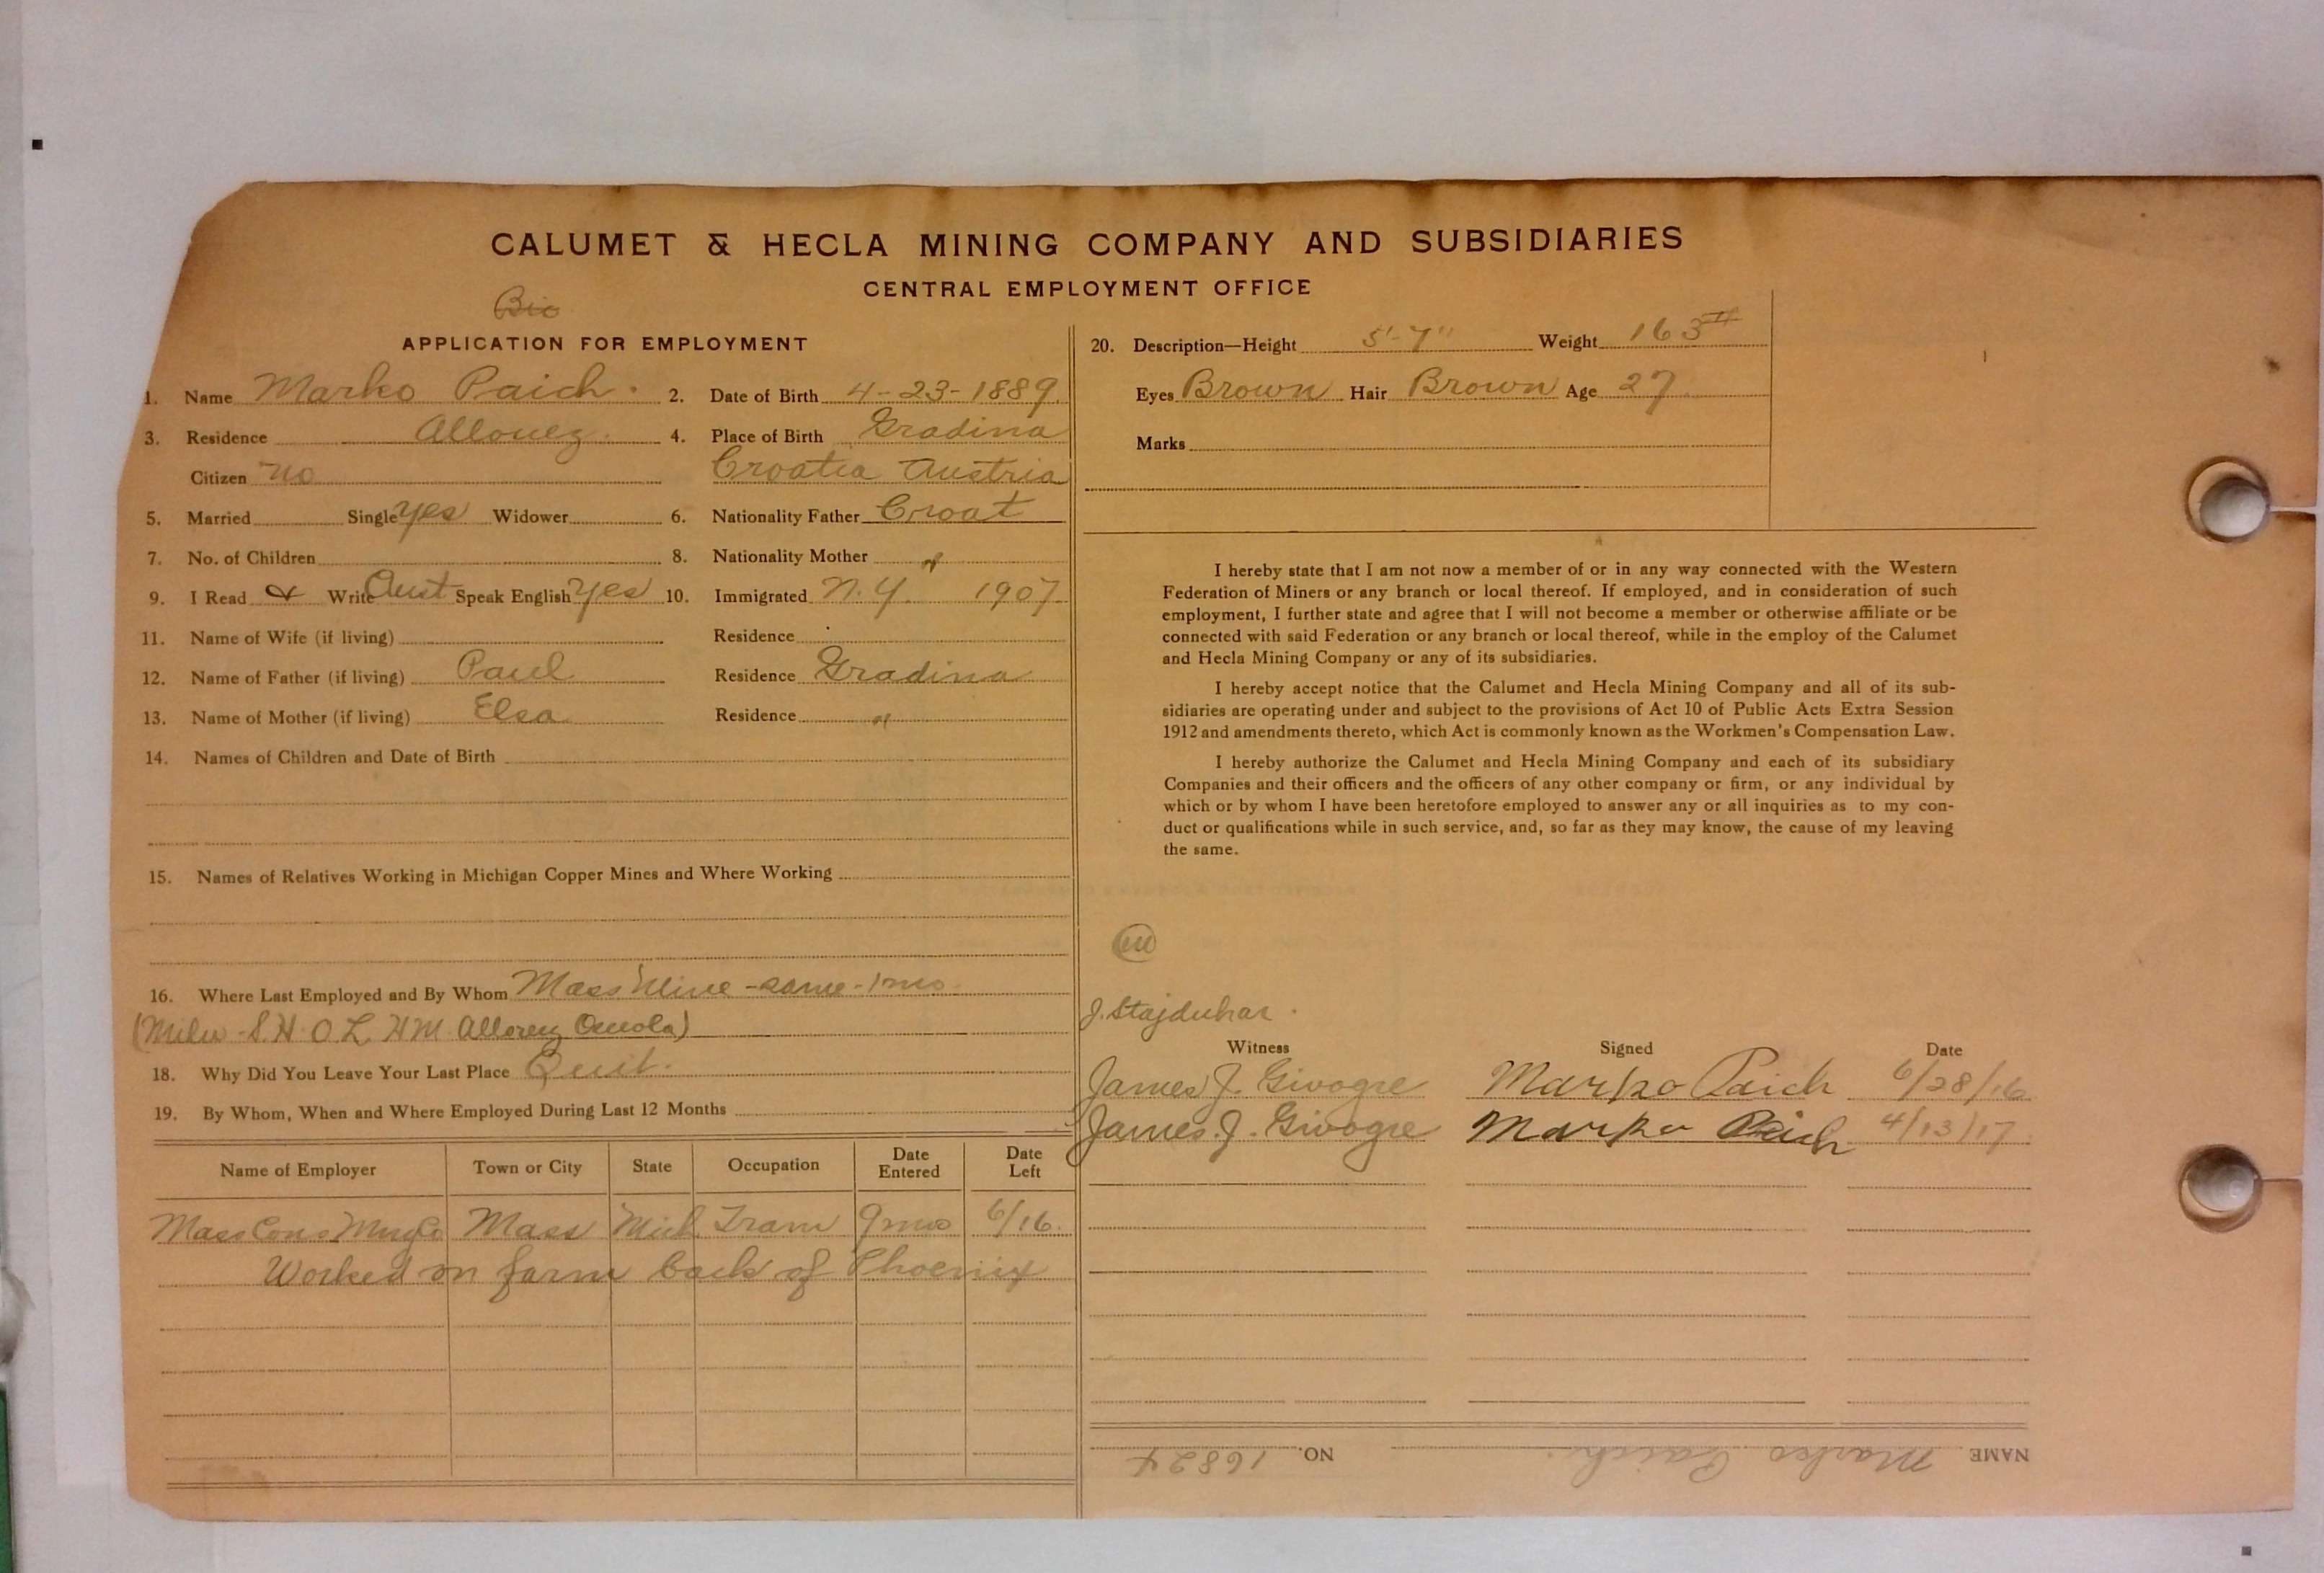 CALUMET & HECLA MINING COMPANY AND SUBSIDIARIES
CENTRAL EMPLOYMENT OFFICE
APPLICATION FOR EMPLOYMENT
1. Name Marko Paich. 2. Date of Birth 4-23-1889
3. Residence Allouez. 4. Place of Birth Gradina
Citizen no Croatia Austria
5. Married Single yes Widower 6. Nationality Father Croat
7. No. of Children 8. Nationality Mother "
9. I Read & Write Aust Speak English yes 10. Immigrated N.Y. 1907
11. Name of Wife (if living) Residence
12. Name of Father (if living) Paul Residence Gradina
13. Name of Mother (if living) Elsa Residence "
14. Names of Children and Date of Birth
15. Names of Relatives Working in Michigan Copper Mines and Where Working
16. Where Last Employed and By Whom Mass Mine - same - 1 mo.
S. H. O. L. HM Allouez Osceola)
18. Why Did You Leave Your Last Place Quit.
19. By Whom, When and Where Employed During Last 12 Months
Name of Employer Town or City State Occupation Date Entered Date Left
Mass Cons Mng Co Mass Mich. Tram 9 mo 6/16.
Worked on farm back of Phoenix
20. Description—Height 5'-7" Weight 163#
Eyes Brown Hair Brown Age 27
Marks
I hereby state that I am not now a member of or in any way connected with the Western
Federation of Miners or any branch or local thereof. If employed, and in consideration of such
employment, I further state and agree that I will not become a member or otherwise affiliate or be
connected with said Federation or any branch or local thereof, while in the employ of the Calumet
and Hecla Mining Company or any of its subsidiaries.
I hereby accept notice that the Calumet and Hecla Mining Company and all of its sub-
sidiaries are operating under and subject to the provisions of Act 10 of Public Acts Extra Session
1912 and amendments thereto, which Act is commonly known as the Workmen's Compensation Law.
I hereby authorize the Calumet and Hecla Mining Company and each of its subsidiary
Companies and their officers and the officers of any other company or firm, or any individual by
which or by whom I have been heretofore employed to answer any or all inquiries as to my con-
duct or qualifications while in such service, and, so far as they may know, the cause of my leaving
the same.
J. Stajduhar.
Witness Signed Date
James J. Givogre Marko Paich 6/28/16
James J. Givogre Marko Paich 4/13/17
NAME Marko Paich. NO. 16824